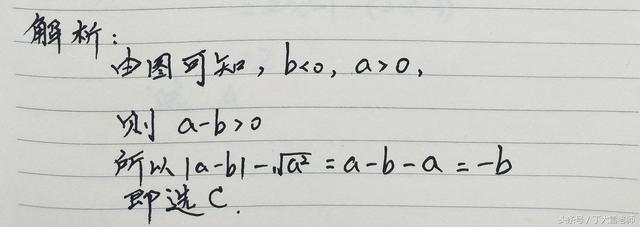 解析:
由图可知, b<0, a>0,
则 a-b>0
所以 |a-b|-√a² = a-b-a = -b
即选 C.
头条号/丁大雷老师